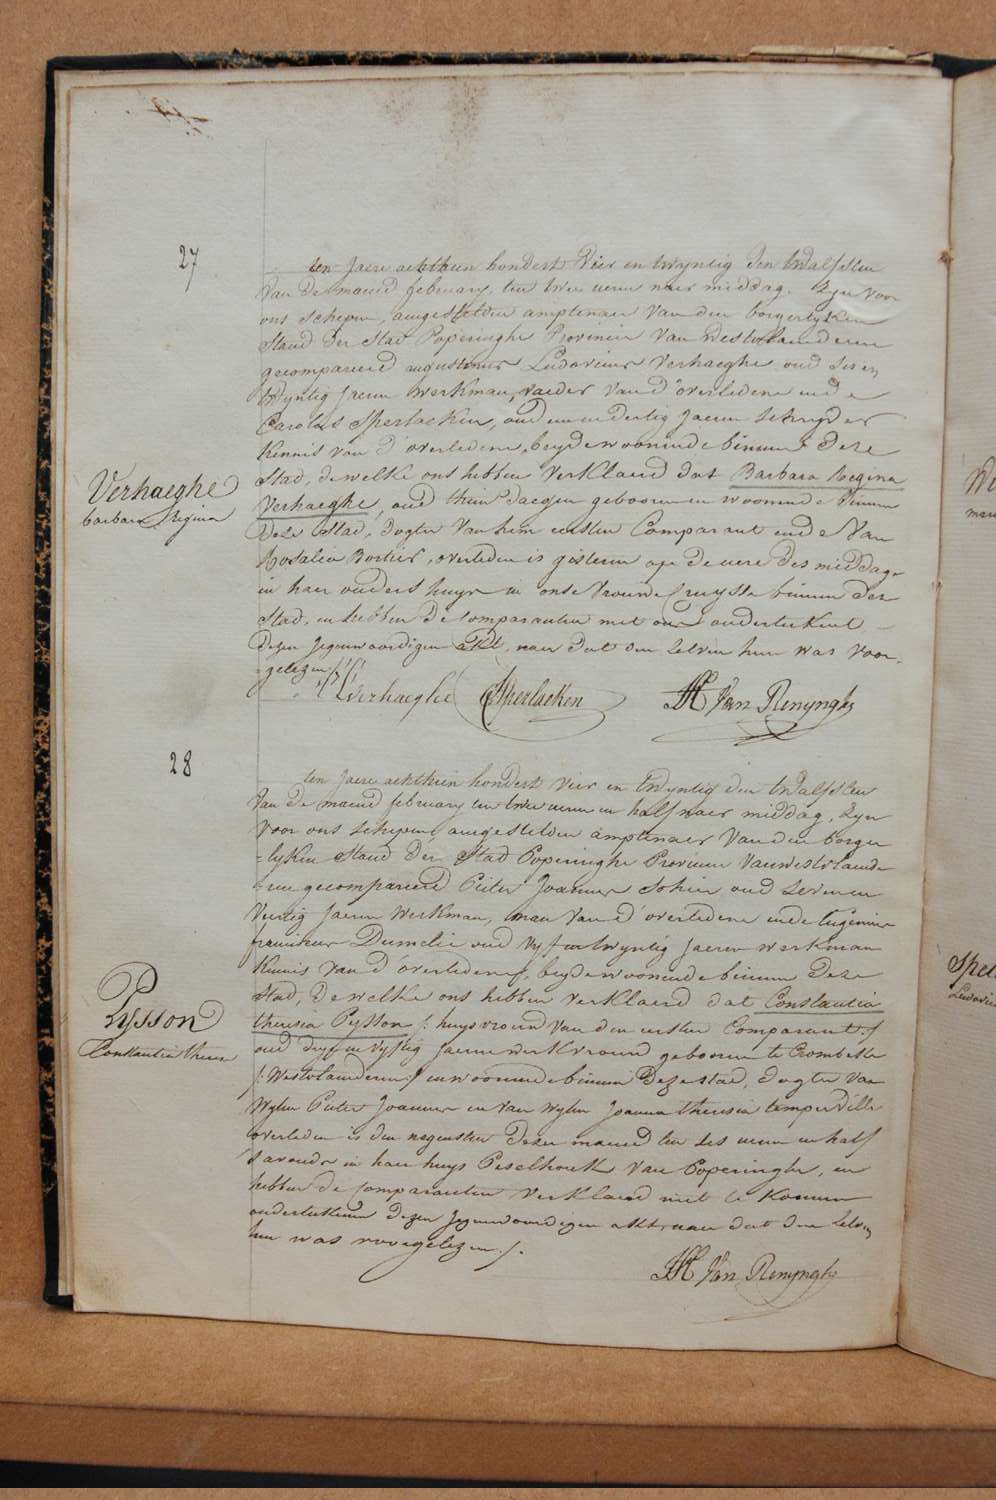 27
ten Jaere achthien hondert vier en twyntig den twalfsten
van de maend february, ten twee uren naer middag. Zyn voor
ons schepen, aengestelden amptenaer van den borgerlyken
Stand der Stad Poperinghe Provincie van Westvlaenderen
gecompareerd augustinus Ludovicus Verhaeghe oud ses en
twyntig Jaeren werkman, vaeder van d'overledene ende
Carolus Sperlaeken, oud een en dertig Jaeren schryder
kennis van d'overledene, beyde woonende binnen deze
Verhaeghe
barbara Regina
Stad, dewelke ons hebben verklaerd dat Barbara Regina
Verhaeghe, oud thien daegen gebooren en woonende binnen
deze Stad, dogter van hem eersten Comparant ende van
Rosalia Bortier, overleden is gisteren op de uere des middags
in haer ouders huys in onse vrouwe Cruysse binnen der
Stad, en hebben de comparanten met ons onderteekent
dezen Jegenwoordigen akt, naer dat den zelven hun was voor-
gelezen ./.
Verhaeghe CSperlaeken JH Van Renynghe
28
ten Jaere achthien hondert vier en twyntig den twalfsten
van de maend february ten twee uren en half naer middag, Zyn
voor ons schepen aengestelden amptenaer van den borger
=lyken Stand der Stad Poperinghe Provincie van westvlaende
=ren gecompareerd Pieter Joannes Sohier oud Zeven en
Veertig Jaeren werkman, man van d'overledene ende Eugenius
franciscus Dumelie oud vyf en twyntig Jaeren werkman
kennis van d'overledene, beyde woonende binnen deze
Pysson
Constantia theresia
Stad, dewelke ons hebben verklaerd dat Constantia
theresia Pysson /: huysvrouw van den eersten Comparant :/
oud dry en vyftig Jaeren werkvrouw gebooren te Crombeke
/: Westvlaenderen :/ en woonende binnen deze stad, dogter van
wylen Pieter Joannes en van wylen Joanna theresia temperville
overleden is den negensten dezer maend ten ses uren en half
s'avonds in haer huys Peselhoek van Poperinghe, en
hebben de comparanten verklaerd niet te konnen
onderteekenen dezen Jegenwoordigen akt, naer dat den zelven
hun was voorgelezen ./.
JH Van Renynghe